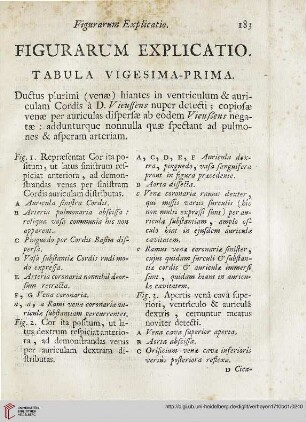 Figurarum Explicatio. 183
FIGURARUM EXPLICATIO.
TABULA VIGESIMA-PRIMA.
Ductus plurimi (venæ) hiantes in ventriculum & auri-
culam Cordis à D. Vieussens nuper detecti: copiosæ
venæ per auriculas dispersæ ab eodem Vieussens nega-
tæ: adduntur que nonnulla quæ spectant ad pulmo-
nes & asperam arteriam.
Fig. 1. Repræsentat Cor ita po-
situm, ut latus sinistrum res-
piciat anteriora, ad demon-
strandas venas per sinistram
Cordis auriculam distributas.
A Auricula sinistra Cordis.
B Arteria pulmonaria abscissa:
reliqua vasa communia hîc non
apparent.
C Pinguedo per Cordis Basim dis-
persa.
D Vasa substantiæ Cordis rudi mo-
do expressa.
E Arteria coronaria nonnihil deor-
sum retracta.
F, G Vena coronaria.
a, a, a Rami venæ coronariæ au-
riculæ substantiam percurrentes.
Fig. 2. Cor ita positum, ut la-
tus dextrum respiciat anterio-
ra, ad demonstrandas venas
per auriculam dextram di-
stributas.
A, C, D, E, F Auricula dex-
tra, pinguedo, vasa sanguifera
prout in figura præcedente.
B Aorta dissecta.
a Vena coronaria ramus dexter,
qui missis variis surculis (hîc
non nudis expressi sunt) per au-
riculæ substantiam, amplo of-
culo hiat in ejusdem auriculæ
cavitatem.
b Ramus venæ coronariæ sinister,
cujus quidam surculi & substan-
tiæ cordis & auriculæ immersi
sunt, quidam hiant in auricu-
læ cavitatem.
Fig. 3. Apertis venâ cavâ supe-
riori, ventriculo & auriculâ
dextris, cernuntur meatus
noviter detecti.
A Vena cava superior aperta.
B Aorta abscissa.
C Orificium venæ cavæ inferioris
versus posteriora reflexa.
D Cica-